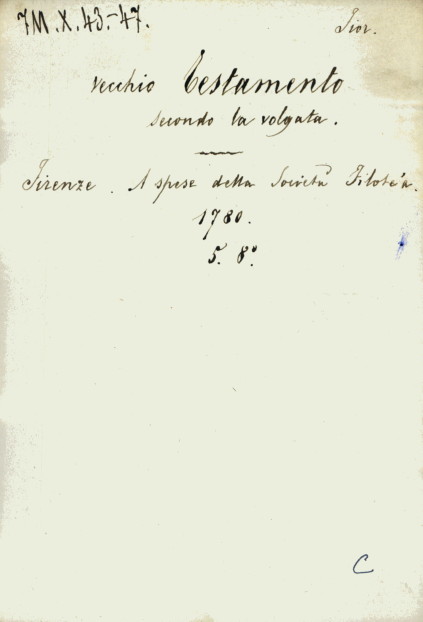 7M.X.43.-47.
Fior.
Vecchio Testamento
secondo la volgata.
Firenze. A spese della Società Filotea.
1780.
5. 8º.
C